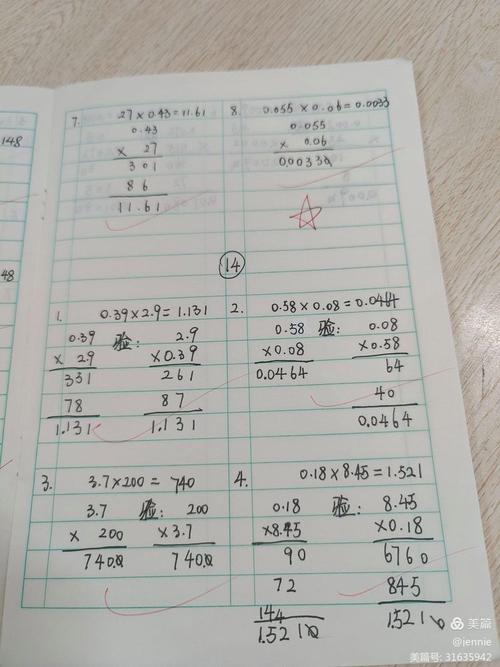 148
48
7. 27×0.43=11.61
0.43
× 27
301
86
11.61
8. 0.055×0.06=0.0033
0.055
× 0.06
0.00330
14
1. 0.39×2.9=1.131
0.39
× 2.9
331
78
1.131
验: 2.9
×0.39
261
87
1.131
2. 0.58×0.08=0.0464
0.58
×0.08
0.0464
验: 0.08
×0.58
64
40
0.0464
3. 3.7×200= 740
3.7
× 200
740.0
验: 200
×3.7
740.0
4. 0.18×8.45=1.521
0.18
×8.45
90
72
144
1.5210
验: 8.45
×0.18
6760
845
1.5210
美篇
@jennie
美篇号: 31635942